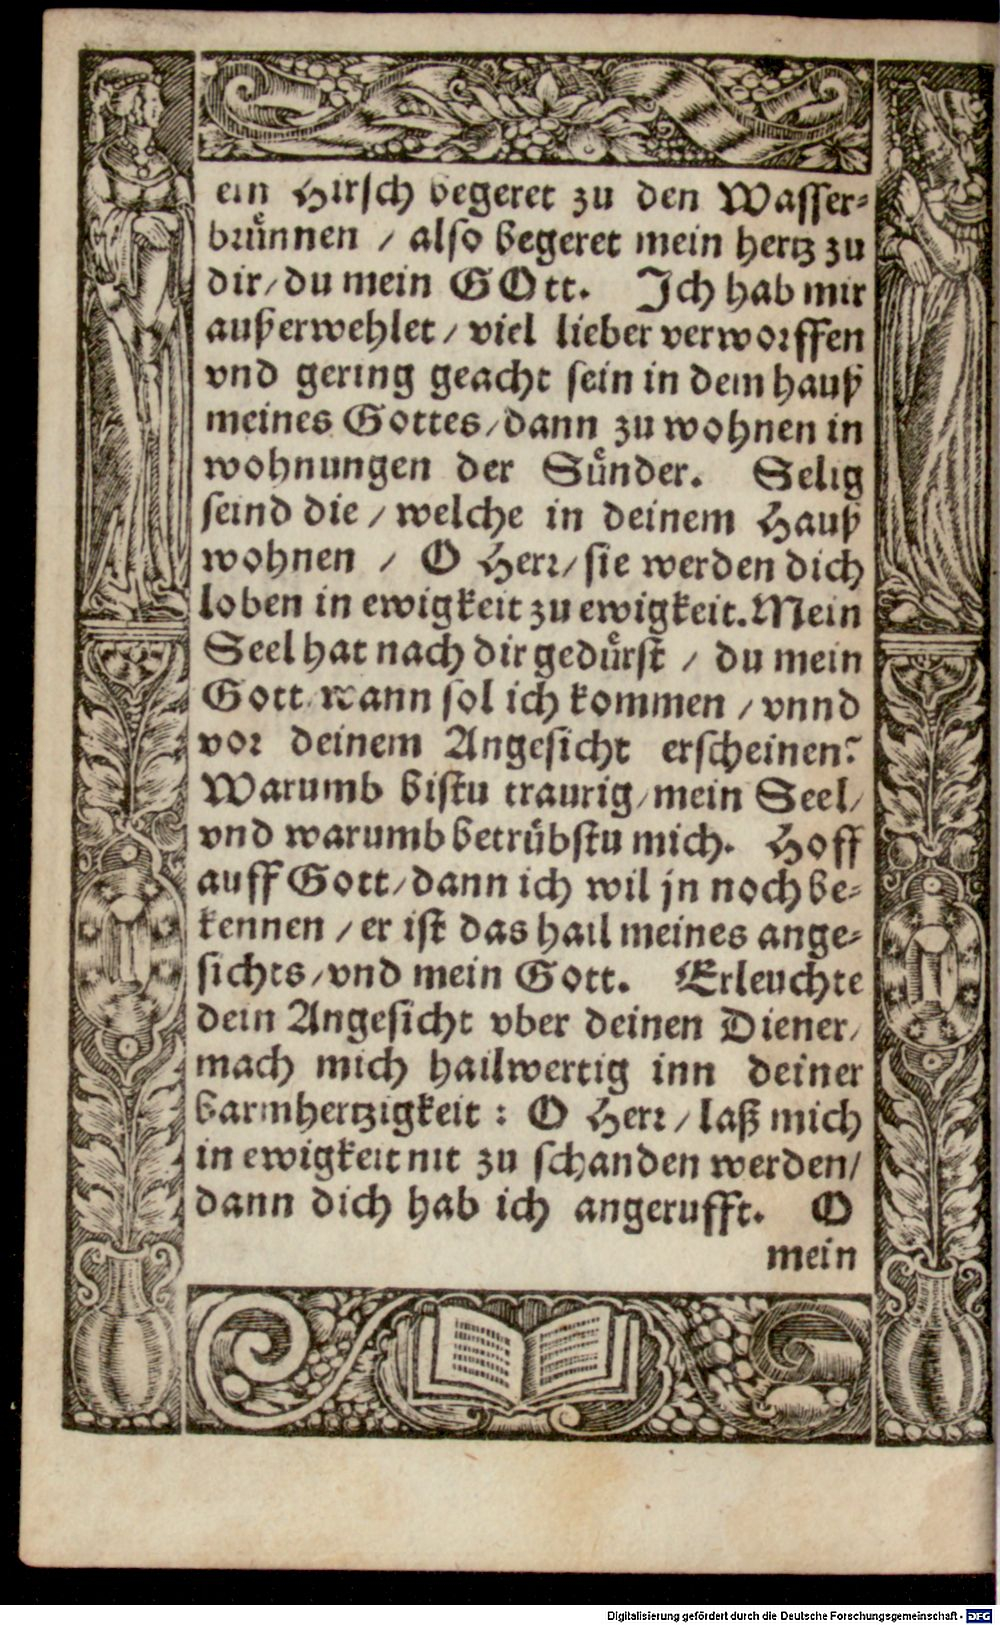 ein Hirsch begeret zu den Wasser-
brünnen / also begeret mein hertz zu
dir / du mein GOtt. Ich hab mir
außerwehlet / viel lieber verworffen
vnd gering geacht sein in dem hauß
meines Gottes / dann zu wohnen in
wohnungen der Sünder. Selig
seind die / welche in deinem Hauß
wohnen / O Herr / sie werden dich
loben in ewigkeit zu ewigkeit. Mein
Seel hat nach dir gedürst / du mein
Gott wann sol ich kommen / vnnd
vor deinem Angesicht erscheinen?
Warumb bistu traurig / mein Seel /
vnd warumb betrübstu mich. Hoff
auff Gott / dann ich wil jn noch be-
kennen / er ist das hail meines ange-
sichts / vnd mein Gott. Erleuchte
dein Angesicht vber deinen Diener /
mach mich hailwertig inn deiner
barmhertzigkeit : O Herr / laß mich
in ewigkeit nit zu schanden werden /
dann dich hab ich angerufft. O
mein
Digitalisierung gefördert durch die Deutsche Forschungsgemeinschaft - DFG